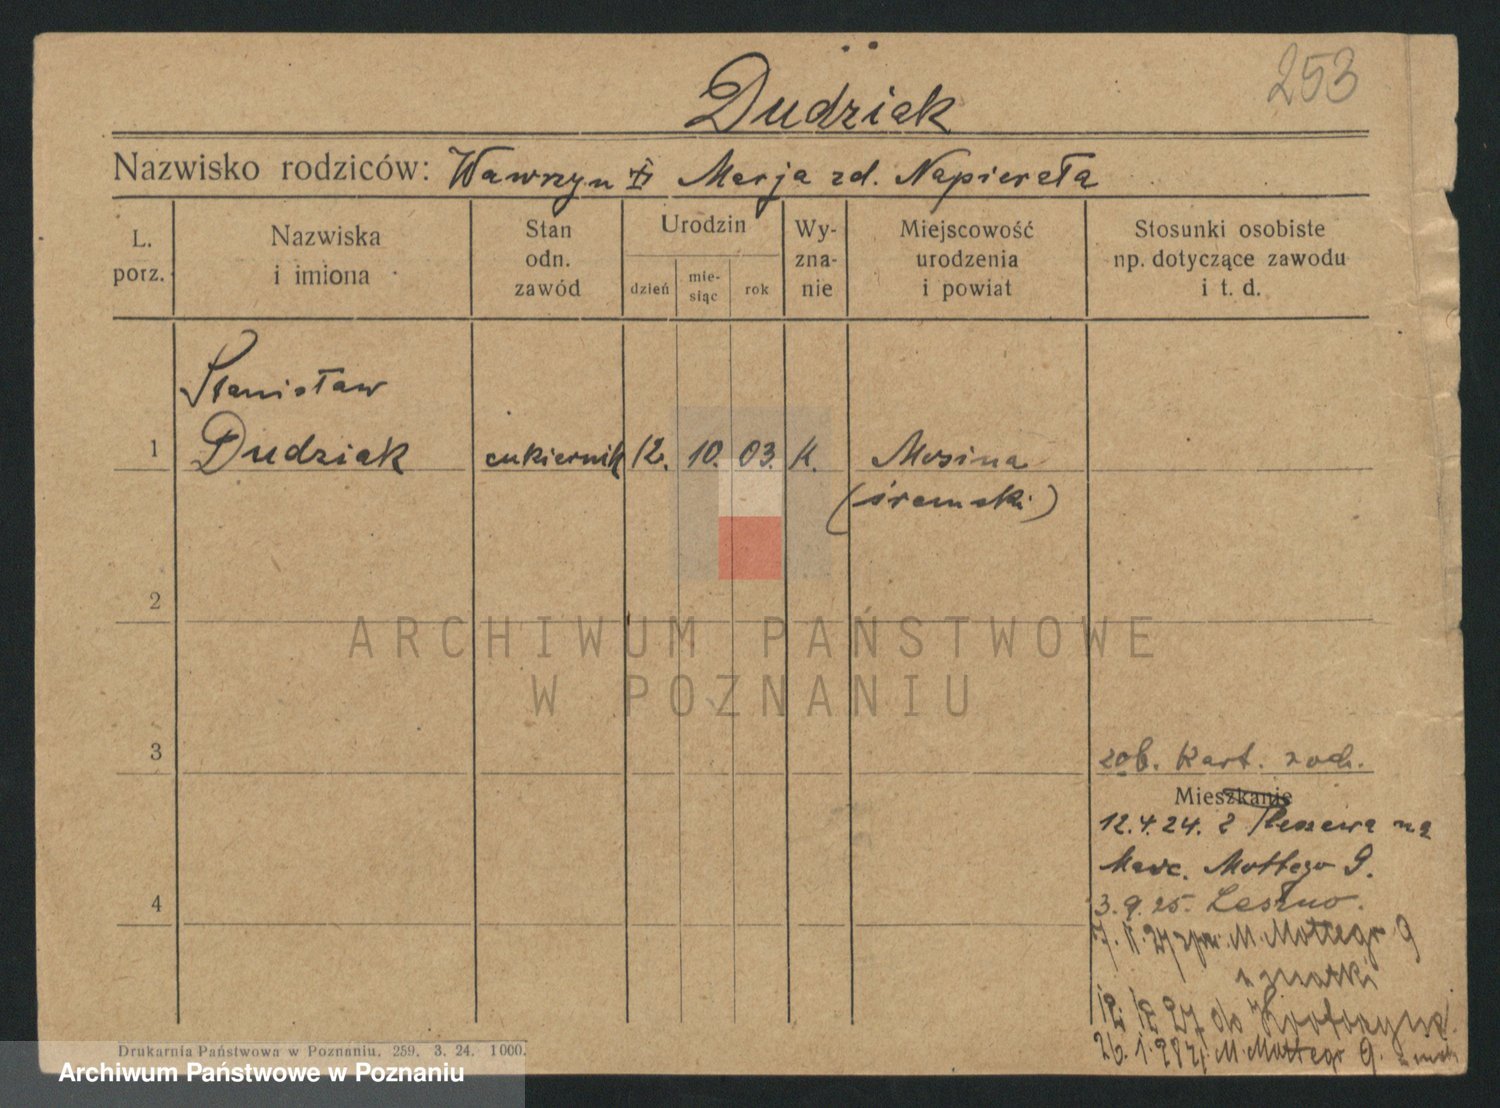 253
Dudziak
Nazwisko rodziców: Wawrzyn Marja zd. Napierała
L. porz.
Nazwiska i imiona
Stan odn. zawód
Urodzin
dzień
mie-siąc
rok
Wy-zna-nie
Miejscowość urodzenia i powiat
Stosunki osobiste np. dotyczące zawodu i t. d.
Stanisław
1 Dudziak cukiernik 12. 10. 03. K. Mosina
(śremski)
2
ARCHIWUM PAŃSTWOWE
W POZNANIU
3
zob. Kart. rodz.
Mieszkanie
12.4.24. z Pleszewa na
Marc. Mottego 9.
4
3.9.25. Leszno.
7. 11. 27 M. Mottego 9
u matki
12. 12. 27 do
26. 1. 28 M. Mottego 9.
Drukarnia Państwowa w Poznaniu. 259. 3. 24. 1000.
Archiwum Państwowe w Poznaniu